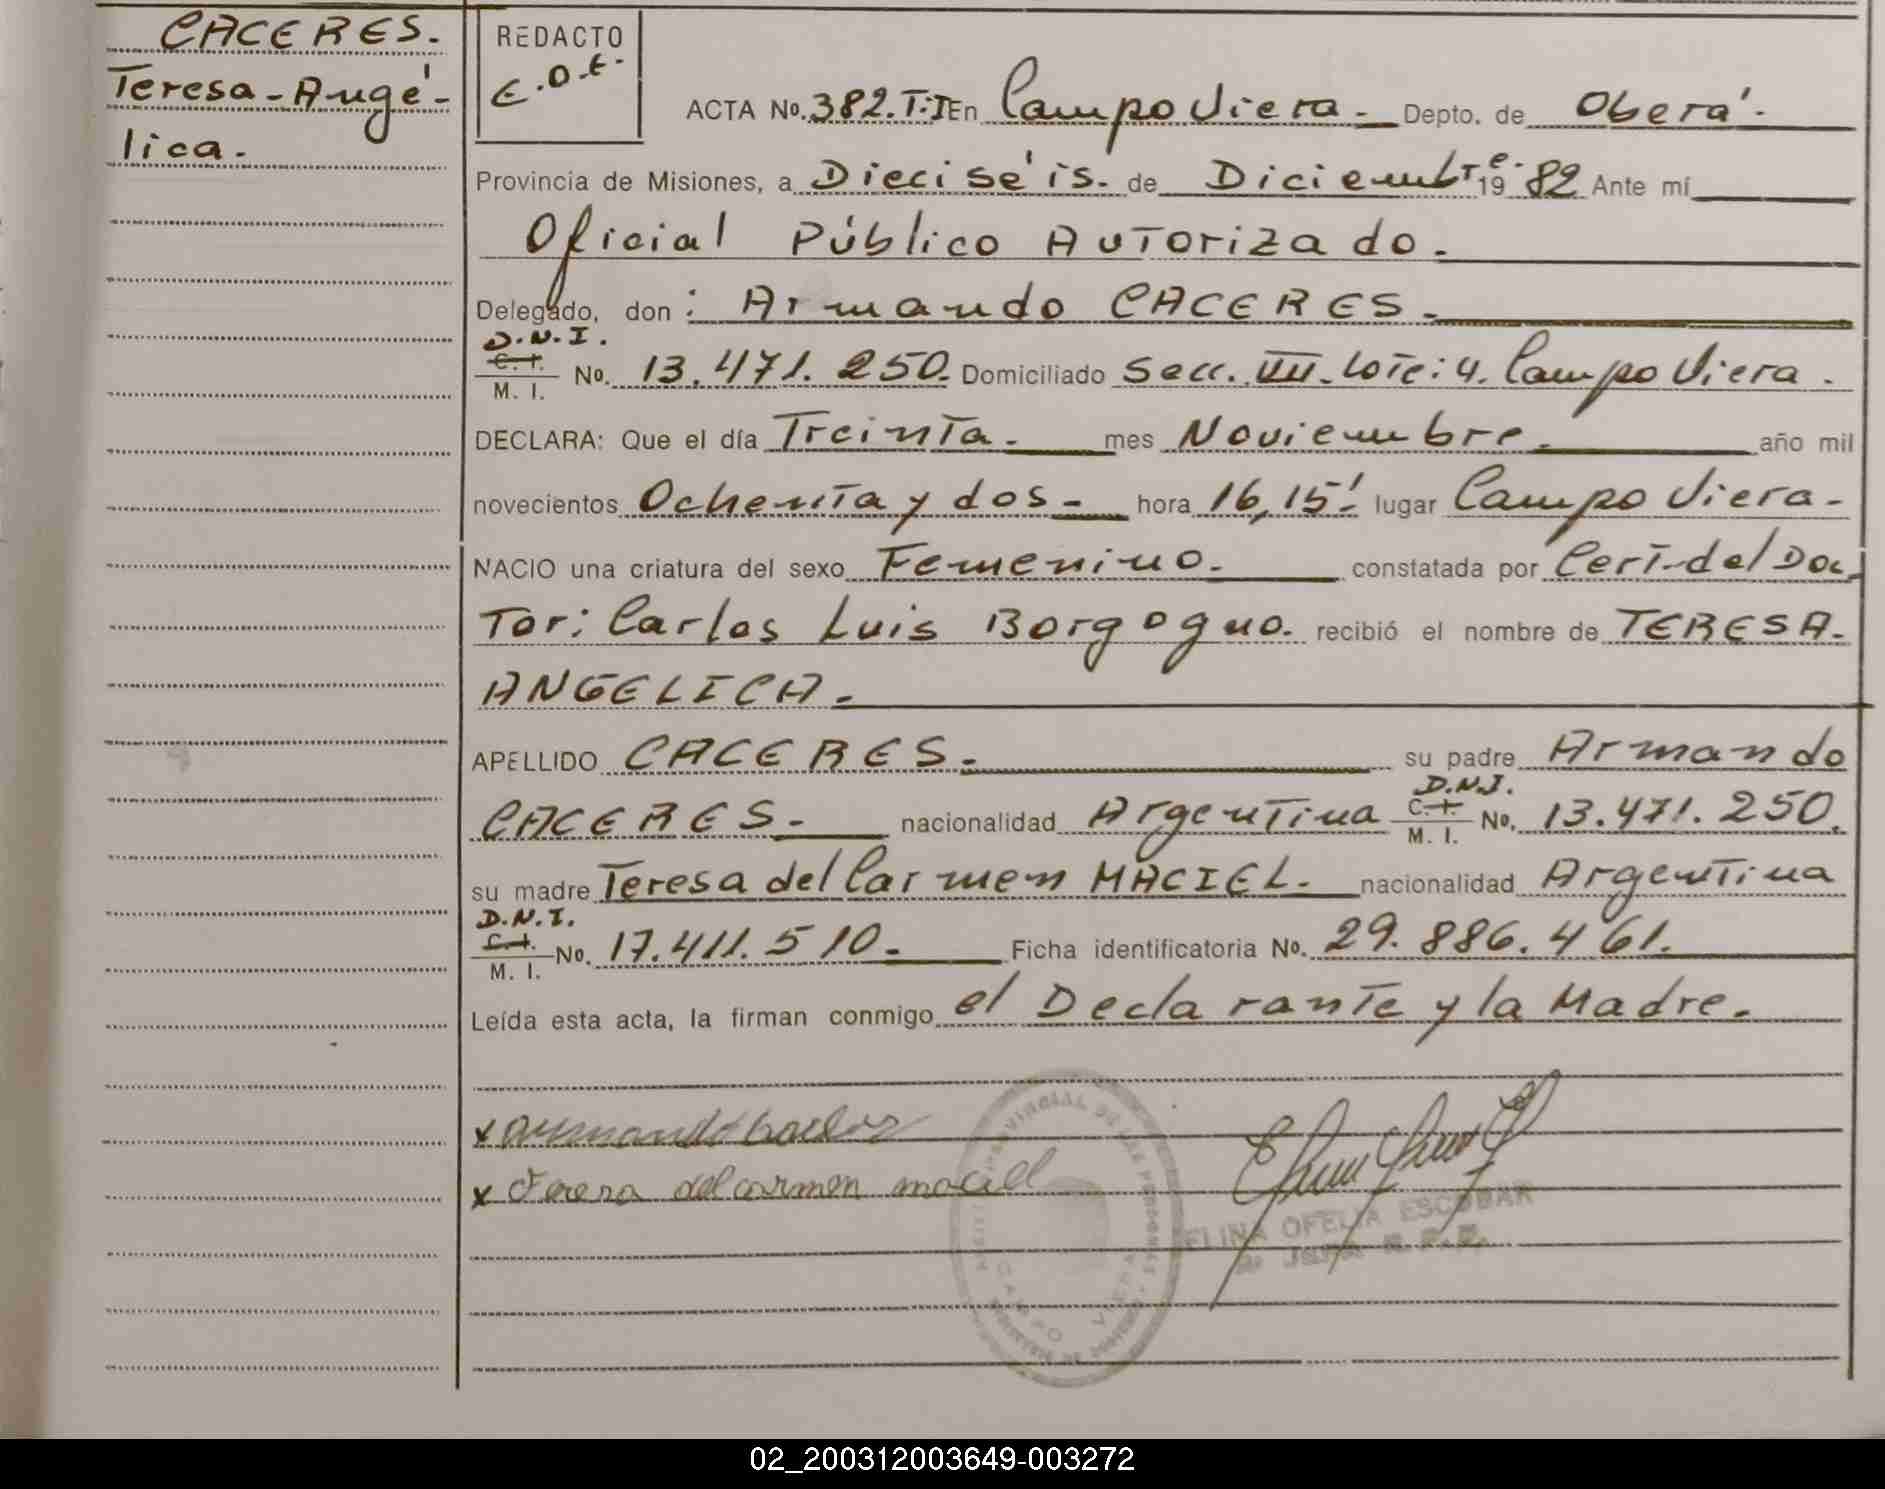 CACERES.
Teresa-Angé-
lica.
REDACTO
E.O.E.
ACTA No. 382.T:I En Campo Viera.- Depto. de Oberá.
Provincia de Misiones, a Dieciséis. de Diciembre. 19 82 Ante mí
Oficial Público Autorizado.
Delegado, don: Armando CACERES.
D.N.I.
C. I.
M. I. No. 13.471.250. Domiciliado Secc. VII. Lote: 4. Campo Viera.
DECLARA: Que el día Treinta. mes Noviembre. año mil
novecientos Ochenta y dos- hora 16,15' lugar Campo Viera-
NACIO una criatura del sexo Femenino. constatada por Cert-del Doc-
Tor: Carlos Luis Borgogno. recibió el nombre de TERESA-
ANGELICA.
APELLIDO CACERES. su padre Armando
CACERES. nacionalidad Argentina D.N.I. C. I. M. I. No. 13.471.250.
su madre Teresa del Carmen MACIEL. nacionalidad Argentina
D.N.I.
C. I.
M. I. No. 17.411.510. Ficha identificatoria No. 29.886.461.
Leída esta acta, la firman conmigo el Declarante y la Madre.
x Armando Caceres
x Teresa del carmen maciel
ELINA OFELIA ESCOBAR
PROVINCIAL DE LAS PERSONAS
CAMPO VIERA
02_200312003649-003272